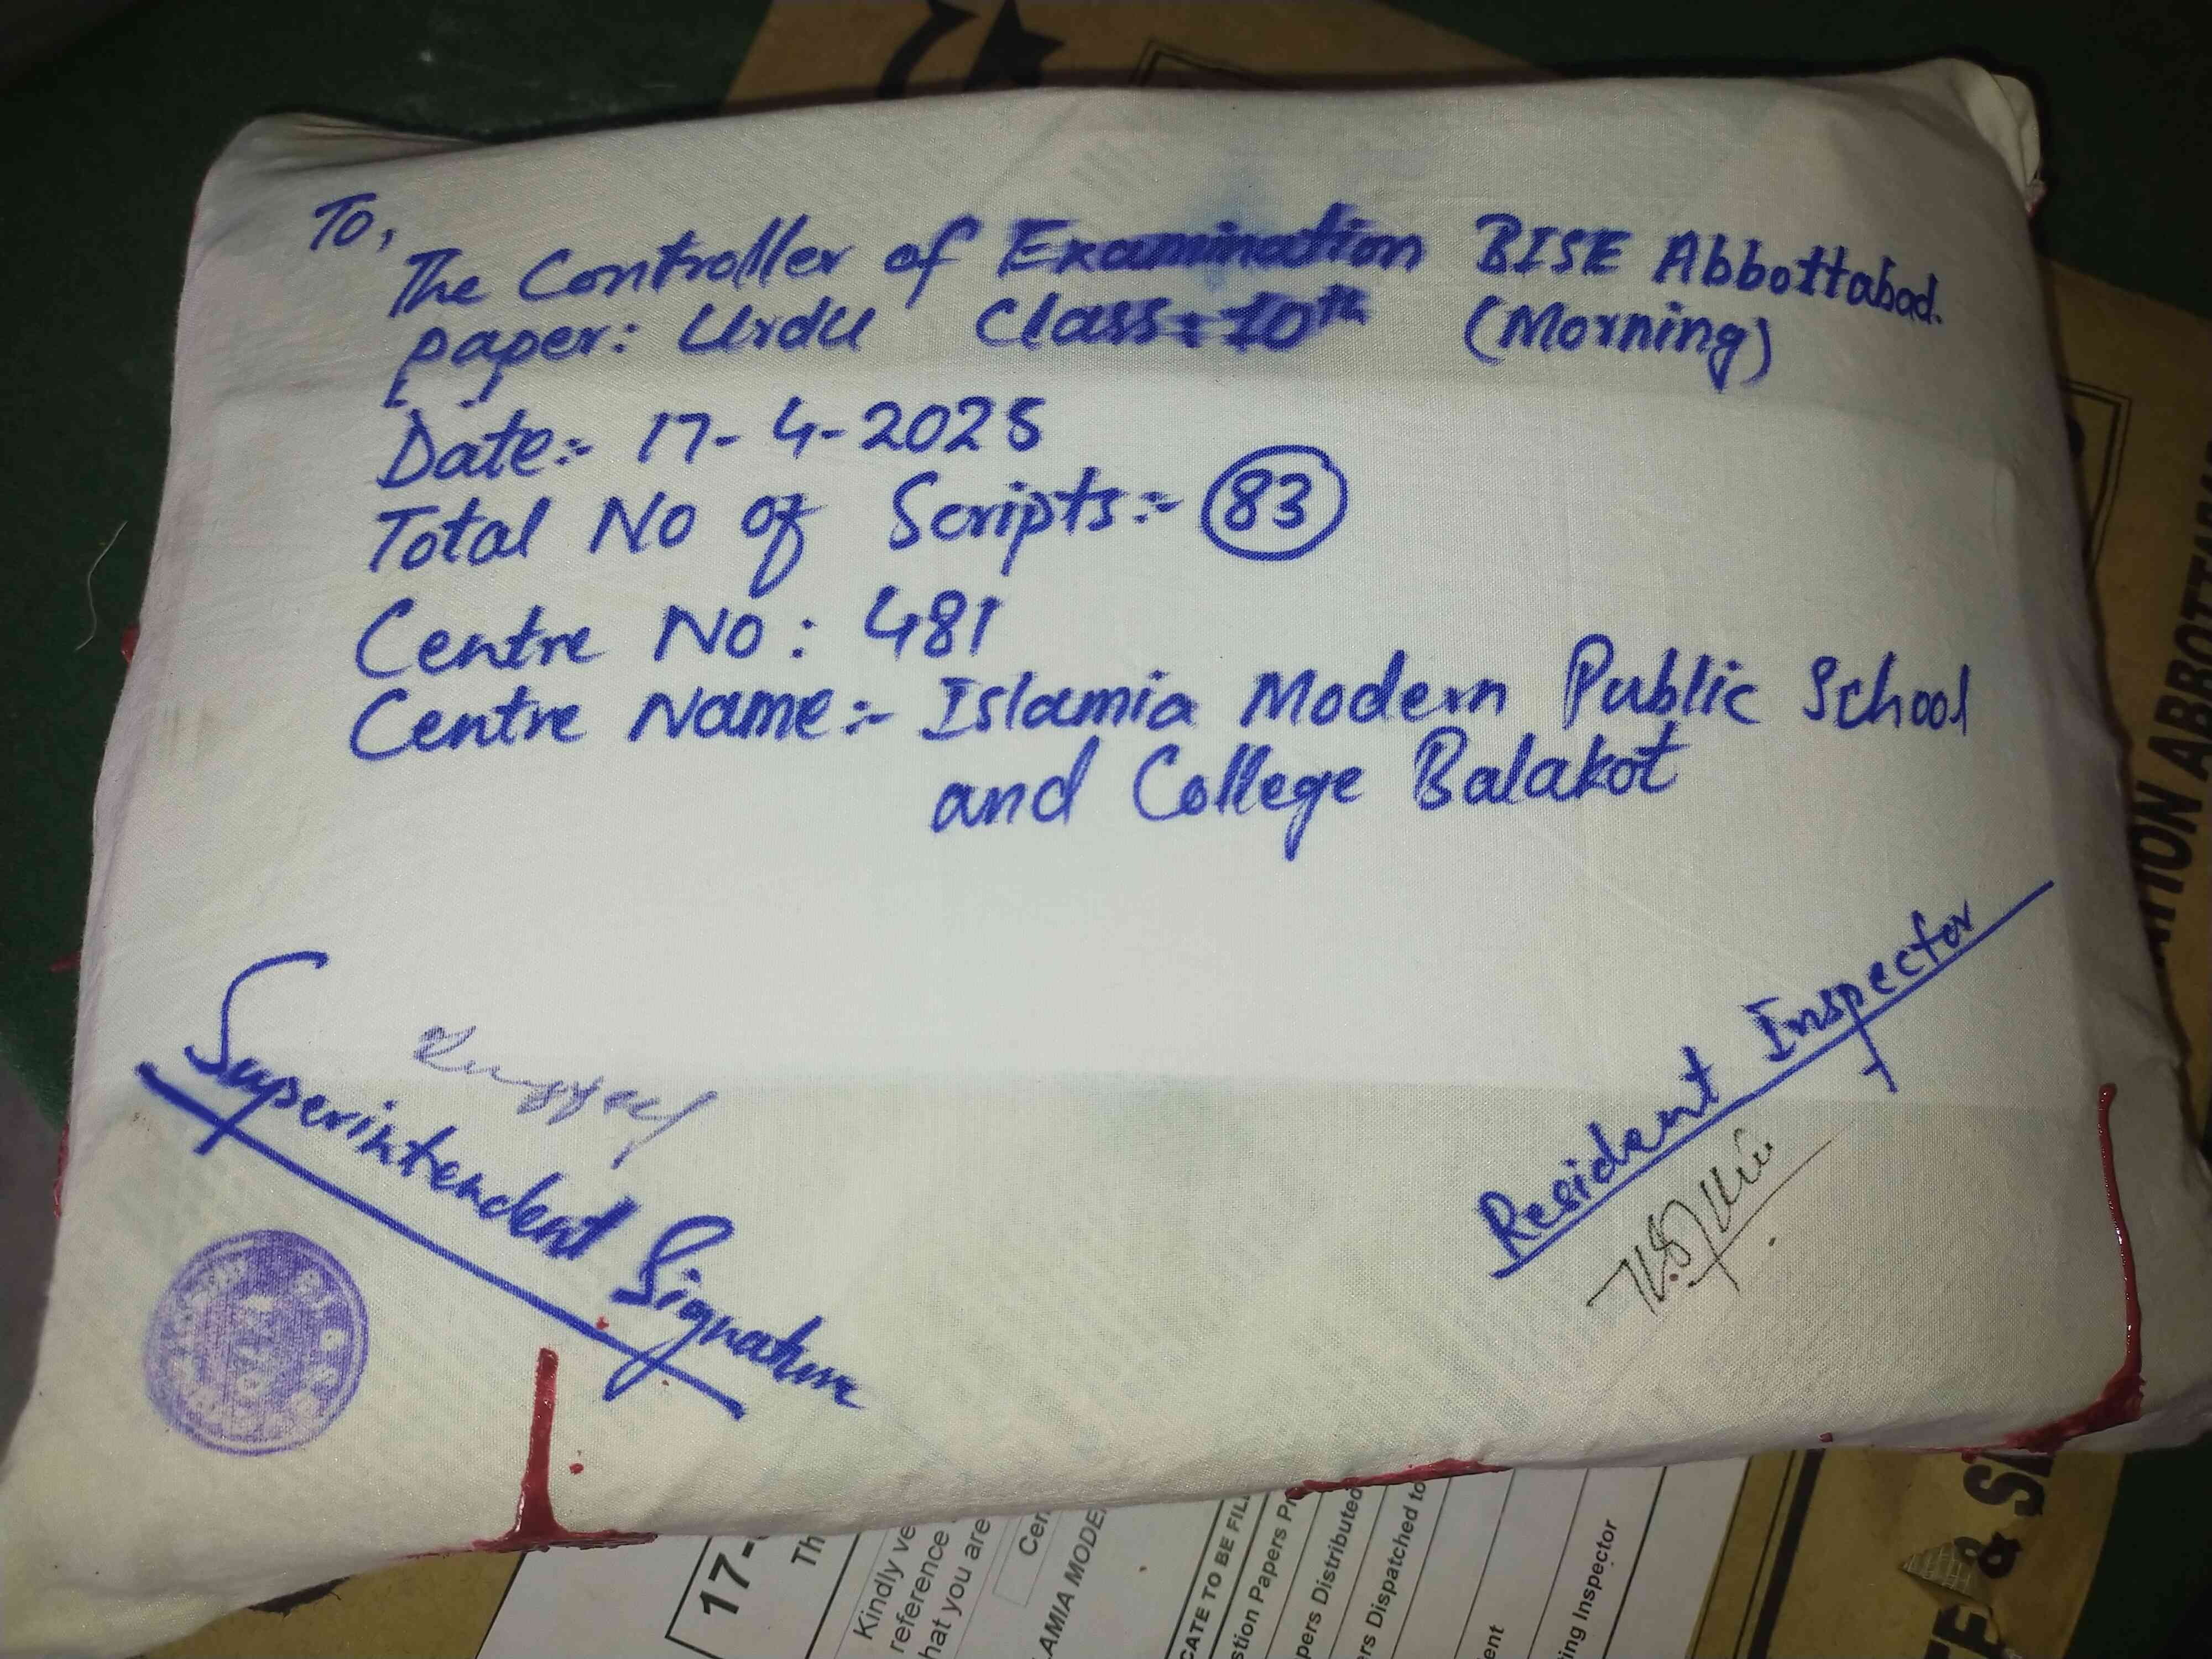 To,
The Controller of Examination BISE Abbottabad.
paper: Urdu Class: 10th (Morning)
Date:- 17-4-2025
Total No of Scripts:- 83
Centre No: 481
Centre Name:- Islamia Modern Public School
and College Balakot
Superintendent Signature
Resident Inspector
17-
Th
Kindly ve
reference
hat you are
Cen
LAMIA MODE
CATE TO BE FIL
stion Papers Pr
pers Distributed
ers Dispatched to
ent
ing Inspector
ATION ABBOTTA
& S